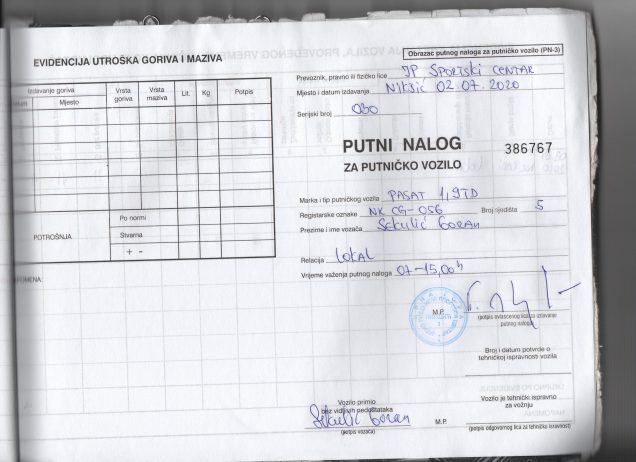 EVIDENCIJA UTROŠKA GORIVA I MAZIVA
Izdavanje goriva
Mjesto
Vrsta goriva
Vrsta maziva
Lit.
Kg
Potpis
POTROŠNJA
Po normi
Stvarna
+ -
Obrazac putnog naloga za putničko vozilo (PN-3)
Prevoznik, pravno ili fizičko lice JP SPORTSKI CENTAR
Mjesto i datum izdavanja Nikšić 02.07.2020
Serijski broj 030
PUTNI NALOG
386767
ZA PUTNIČKO VOZILO
Marka i tip putničkog vozila PASAT 1,9TD
Registarske oznake NK CG-056 Broj sjedišta 5
Prezime i ime vozača Sekulić Goran
Relacija LOKAL
Vrijeme važenja putnog naloga 07-15,00h
M.P.
(potpis ovlašćenog lica za izdavanje
putnog naloga)
Broj i datum potvrde o
tehničkoj ispravnosti vozila
Vozilo primio
bez vidljivih nedostataka
Sekulić Goran
(potpis vozača)
Vozilo je tehnički ispravno
za vožnju
M.P.
(potpis odgovornog lica za tehničku ispravnost)